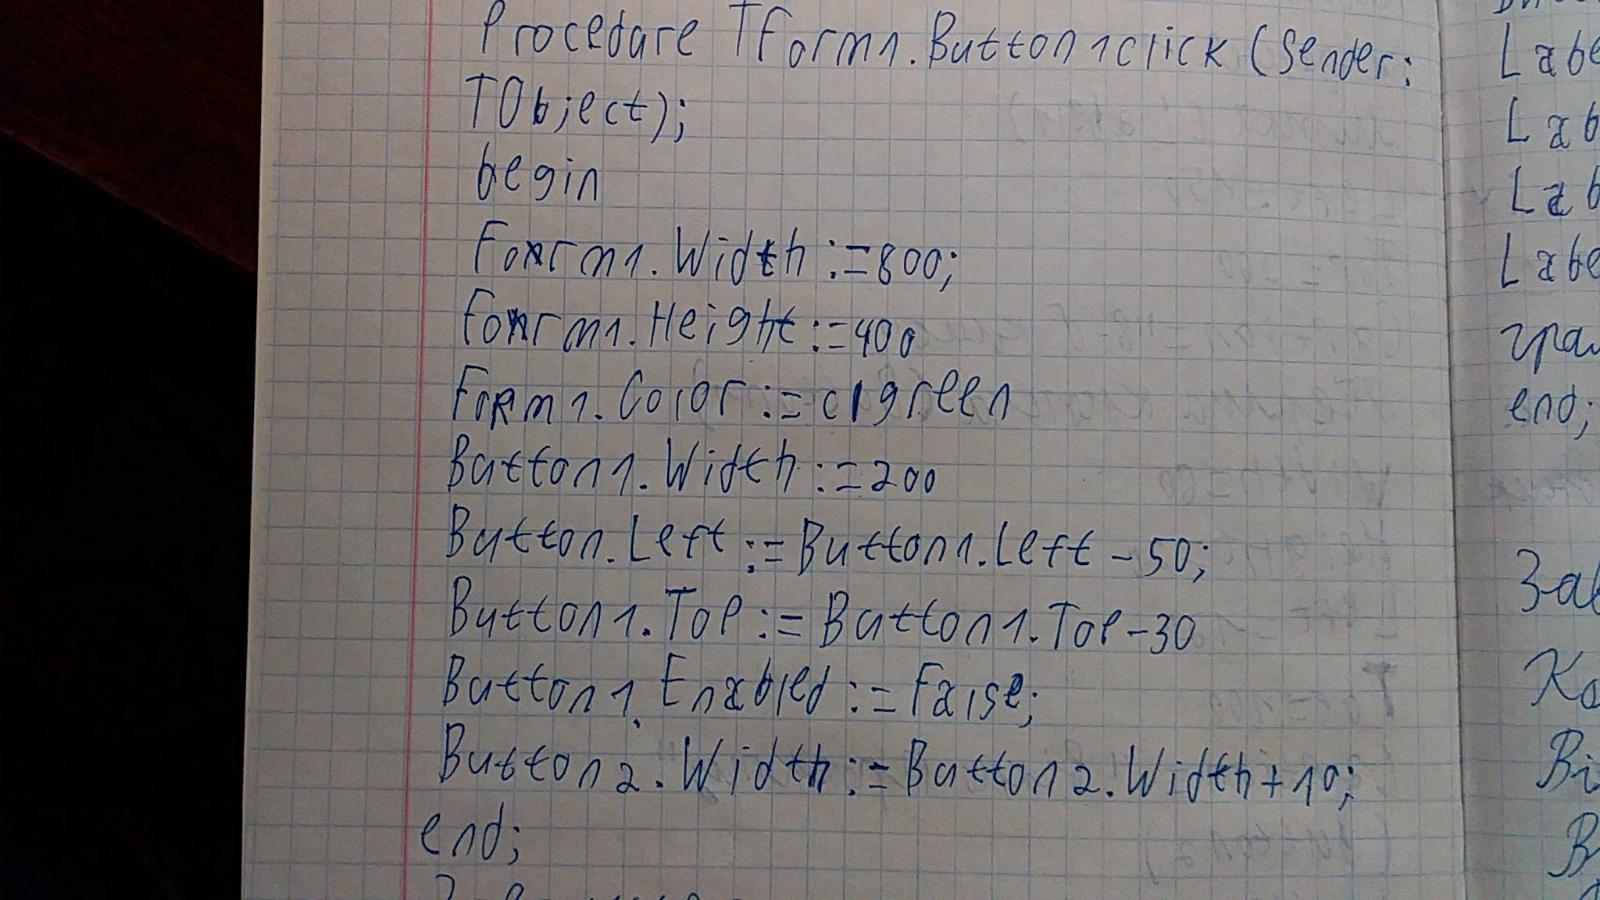 Procedure TForm1.Button1click (Sender:
TObject);
begin
Form1.Width:=800;
Form1.Height:=400
Form1.Color:=clgreen
Button1.Width:=200
Button.Left:=Button1.Left-50;
Button1.Top:=Button1.Top-30
Button1.Enabled:=False;
Button2.Width:=Button2.Width+10;
end;
Labe
Lab
Lab
Labe
гра
end;
Зав
Ко
Ві
В